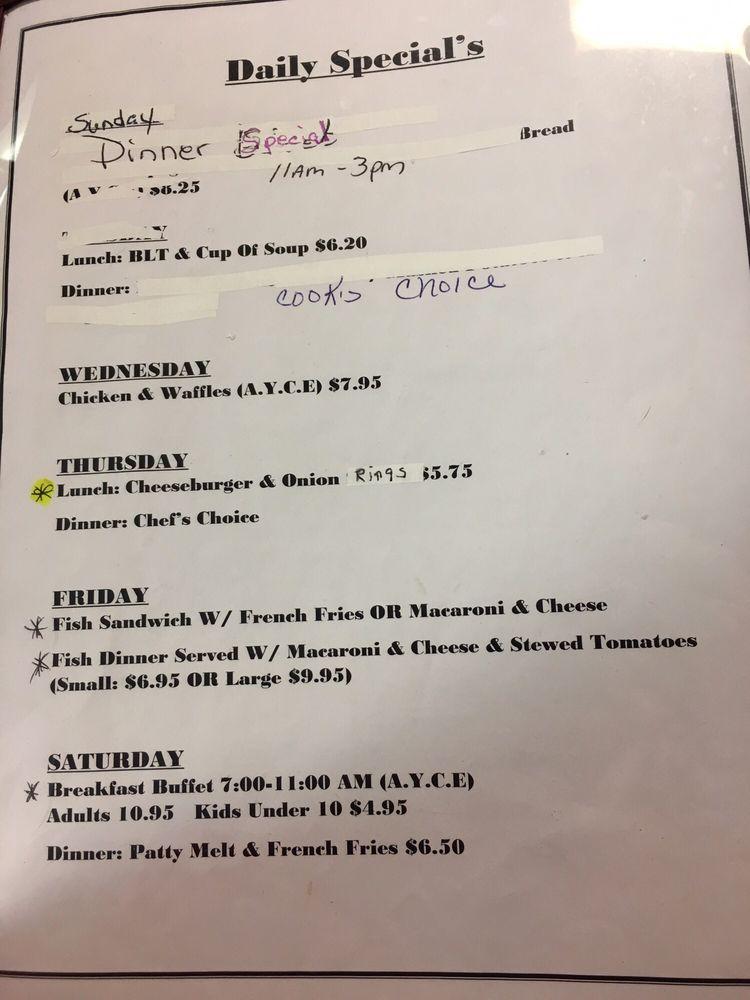 Daily Special's
Sunday
Dinner Special Bread
11Am - 3pm
6.25
Lunch: BLT & Cup Of Soup $6.20
Dinner:
COOK'S CHOICE
WEDNESDAY
Chicken & Waffles (A.Y.C.E) $7.95
THURSDAY
* Lunch: Cheeseburger & Onion Rings $5.75
Dinner: Chef's Choice
FRIDAY
* Fish Sandwich W/ French Fries OR Macaroni & Cheese
* Fish Dinner Served W/ Macaroni & Cheese & Stewed Tomatoes
(Small: $6.95 OR Large $9.95)
SATURDAY
* Breakfast Buffet 7:00-11:00 AM (A.Y.C.E)
Adults 10.95 Kids Under 10 $4.95
Dinner: Patty Melt & French Fries $6.50